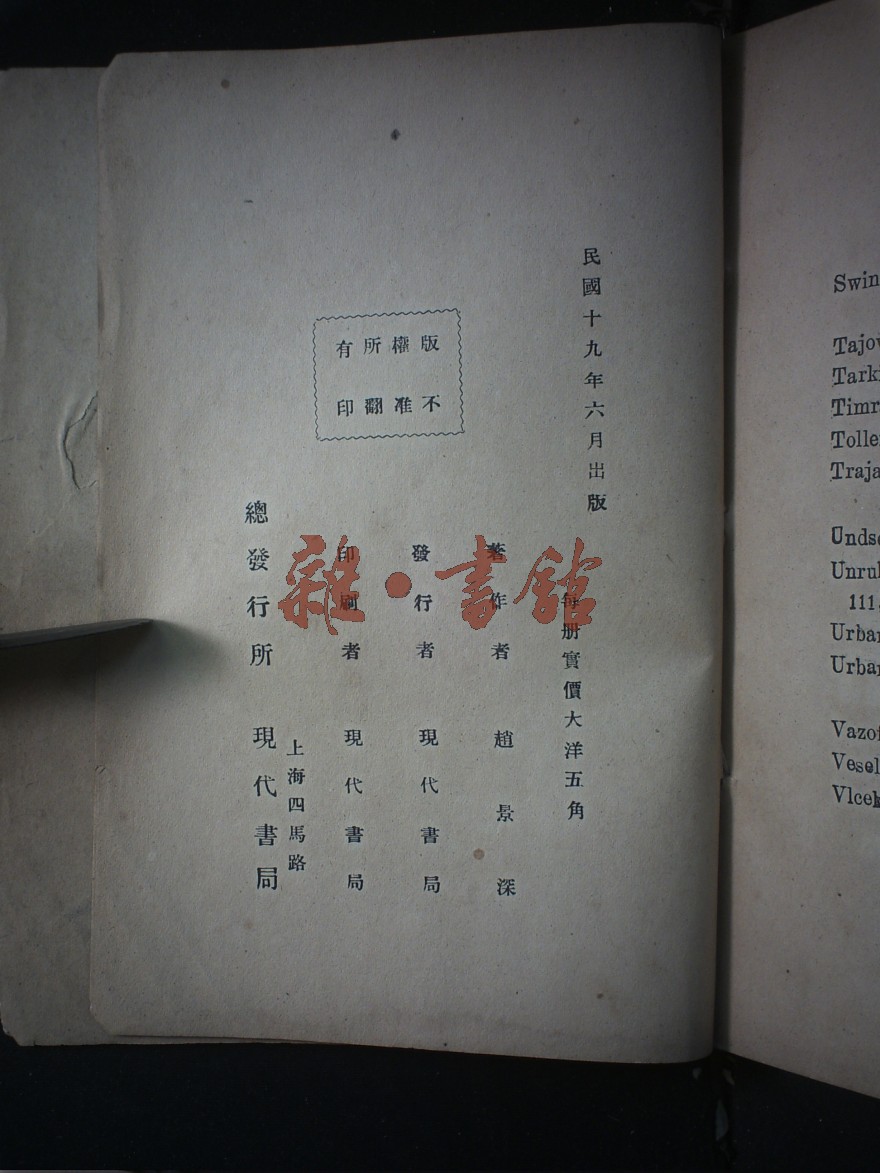 民國十九年六月出版
每册實價大洋五角
著作者 趙景深
發行者 現代書局
印刷者 現代書局
上海四馬路
總發行所 現代書局
版權所有
不准翻印
雜·書館
Swin
Tajov
Tark
Timr
Tolle
Traja
Unds
Unru
111
Urba
Urba
Vazo
Vesel
Vlcek